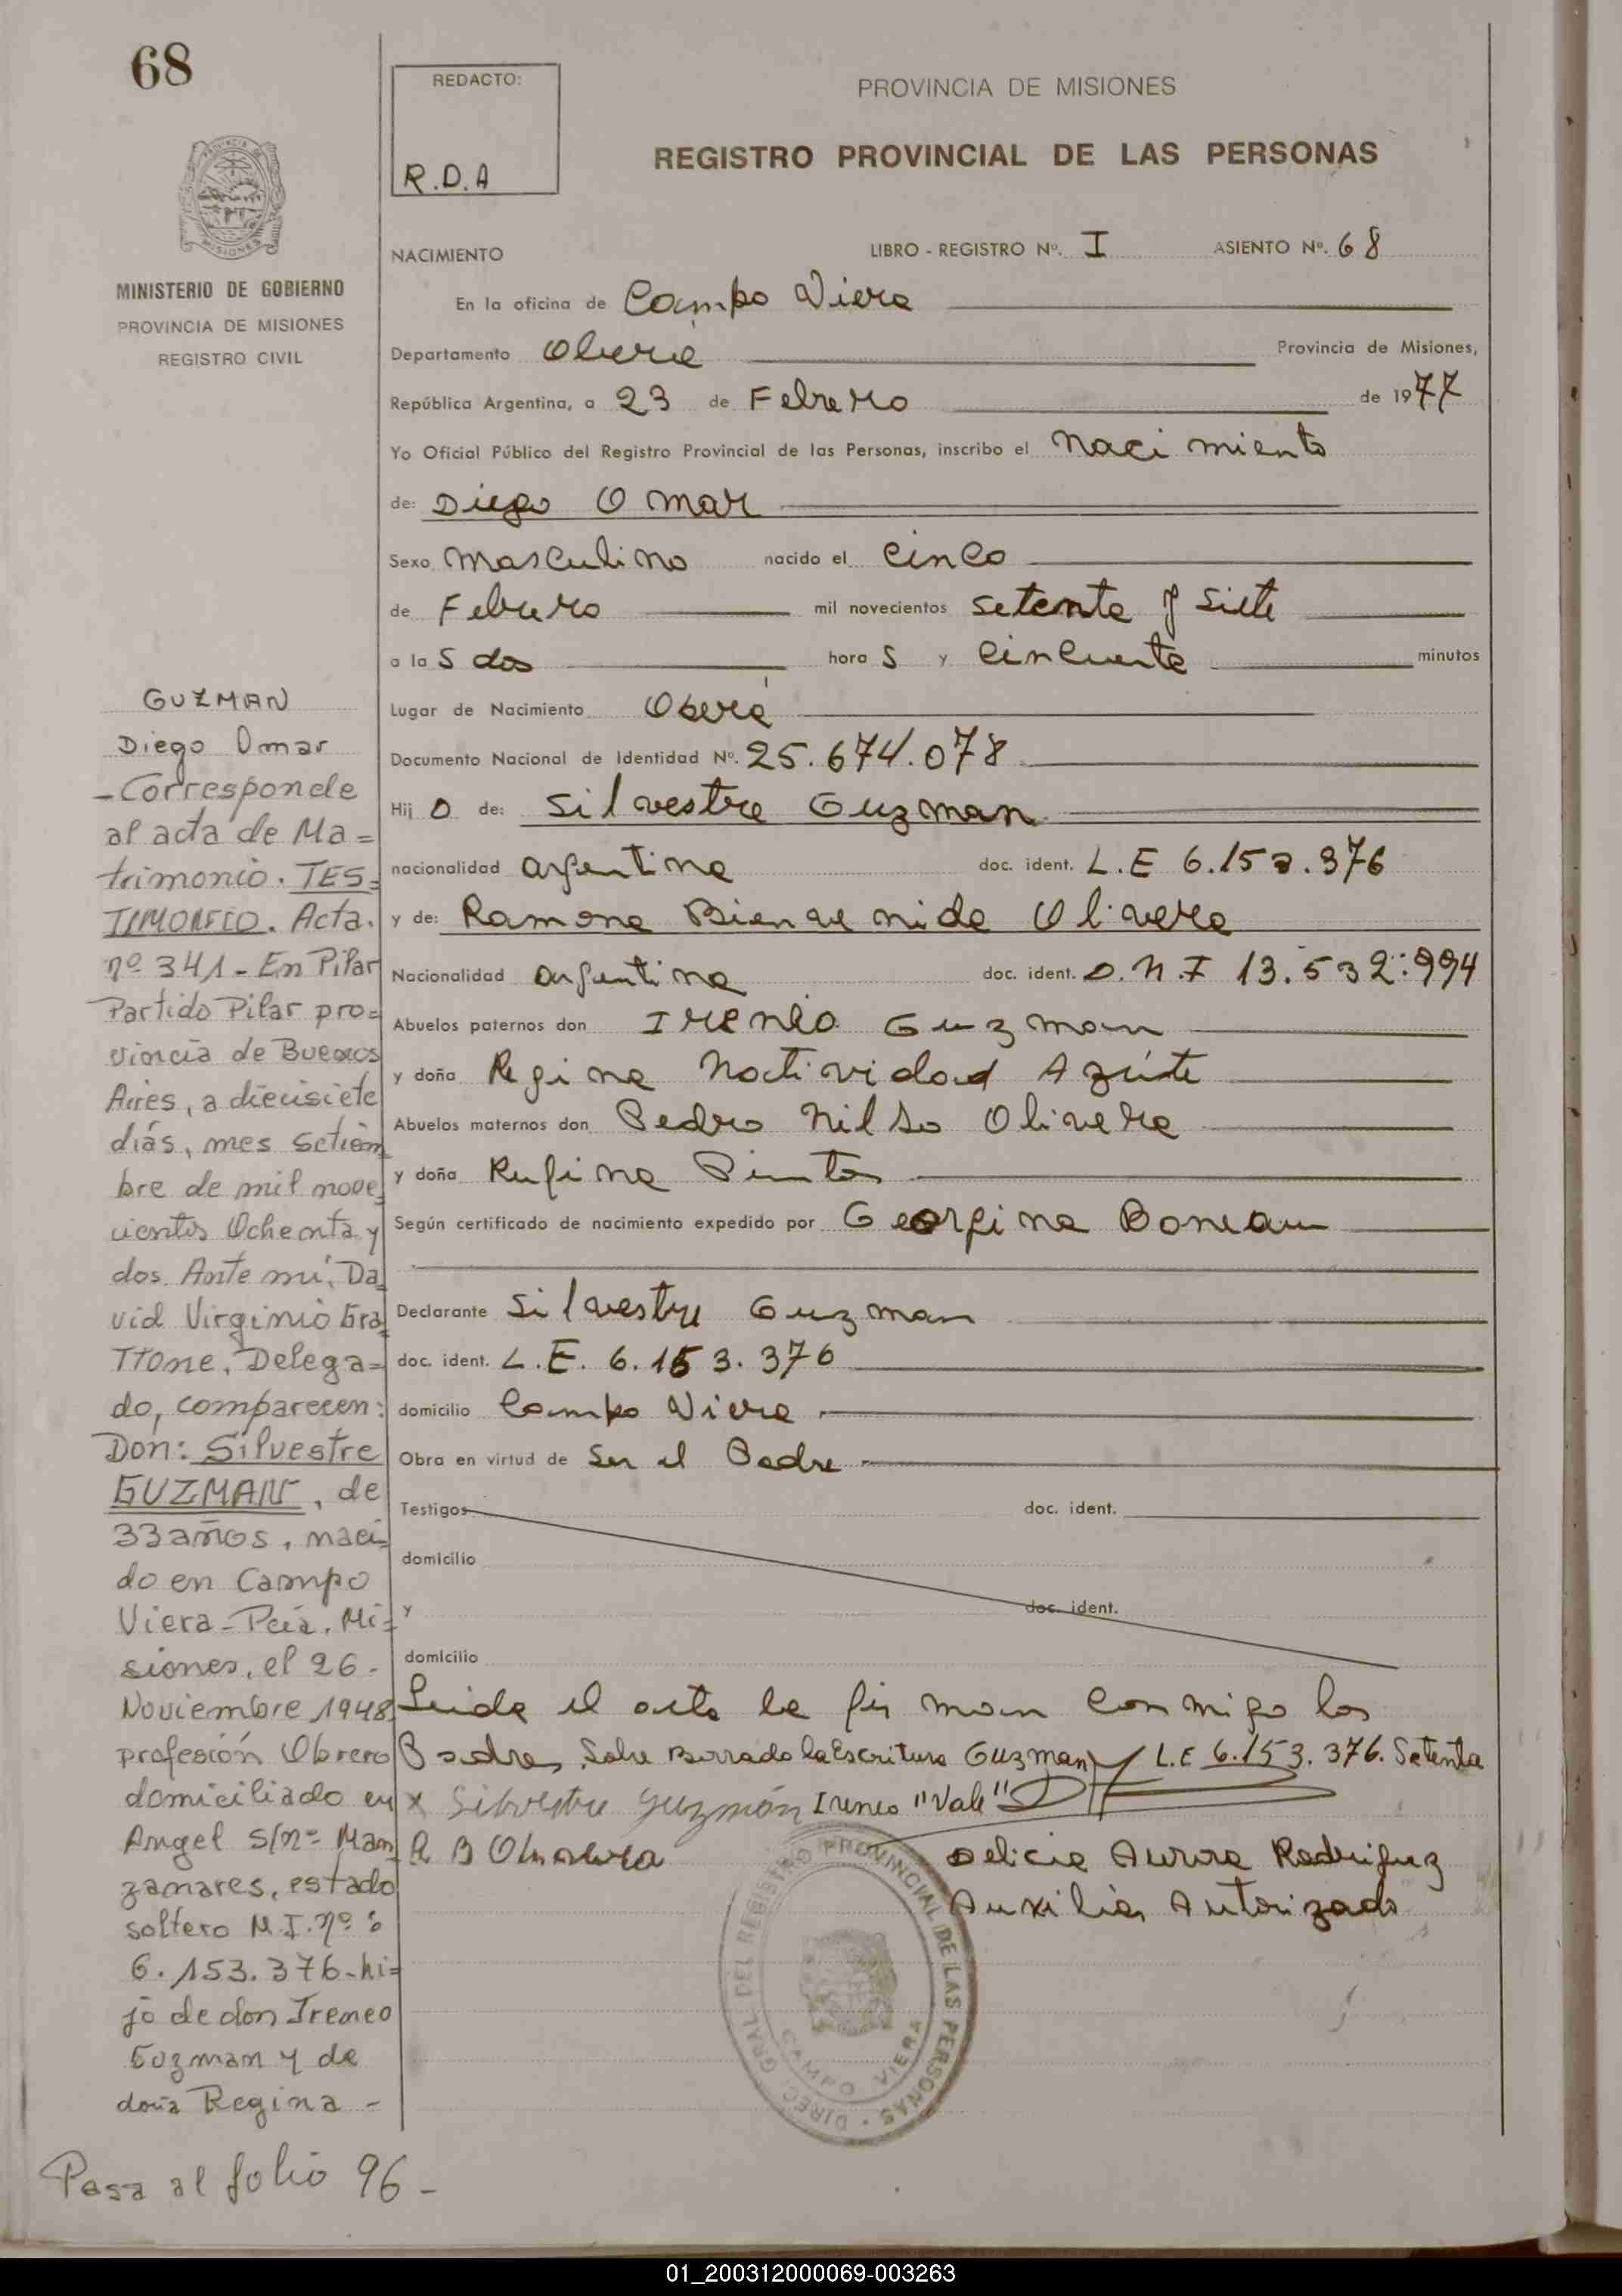 68
REDACTO:
R.D.A
PROVINCIA DE MISIONES
REGISTRO PROVINCIAL DE LAS PERSONAS
MINISTERIO DE GOBIERNO
PROVINCIA DE MISIONES
REGISTRO CIVIL
NACIMIENTO LIBRO - REGISTRO Nº. I ASIENTO Nº. 68
En la oficina de Campo Viera
Departamento Oberá Provincia de Misiones,
República Argentina, a 23 de Febrero de 1977
Yo Oficial Público del Registro Provincial de las Personas, inscribo el Nacimiento
de: Diego Omar
Sexo Masculino nacido el Cinco
de Febrero mil novecientos setenta y siete
a la s dos hora s y Cincuenta minutos
Lugar de Nacimiento Oberá
Documento Nacional de Identidad Nº. 25.674.078
Hij o de: Silvestre Guzman
nacionalidad argentina doc. ident. L.E 6.153.376
y de: Ramona Bienvenida Olivera
Nacionalidad argentina doc. ident. D.N.I 13.532.994
Abuelos paternos don Ireneo Guzman
y doña Regina Natividad
Abuelos maternos don Pedro Nilso Olivera
y doña Rufina Pinto
Según certificado de nacimiento expedido por Georgina
Declarante Silvestre Guzman
doc. ident. L.E. 6.153.376
domicilio Campo Viera
Obra en virtud de Ser el Padre
Testigos doc. ident.
domicilio
y doc. ident.
domicilio
Leida el acta la firman conmigo los
Padres. Sobre Borrado la Escritura Guzman L.E 6.153.376. Setenta
x Silvestre Guzmán Ireneo "Vale"
R B Olivera
Delicia Aurora Rodriguez
Auxiliar Autorizada
DIREC. GRAL. DEL REGISTRO PROVINCIAL DE LAS PERSONAS
CAMPO VIERA
GUZMAN
Diego Omar
-Corresponde
al acta de Ma=
trimonio. TES=
TIMONIO. Acta.
nº 341 - En Pilar
Partido Pilar pro=
vincia de Buenos
Aires, a diecisiete
días, mes Setiem
bre de mil nove
cientos Ochenta y
dos. Ante mí, Da
vid Virginio Gra
TTone, Delega=
do, comparecen:
Don: Silvestre
GUZMAN, de
33 años, naci=
do en Campo
Viera - Pcia. Mi=
siones, el 26-
Noviembre 1948
profesión Obrero
domiciliado en
Angel s/nº Man
zanares, estado
soltero M.I. nº:
6.153.376 - hi=
jo de don Ireneo
Guzman y de
doña Regina -
Pasa al folio 96 -
01_200312000069-003263